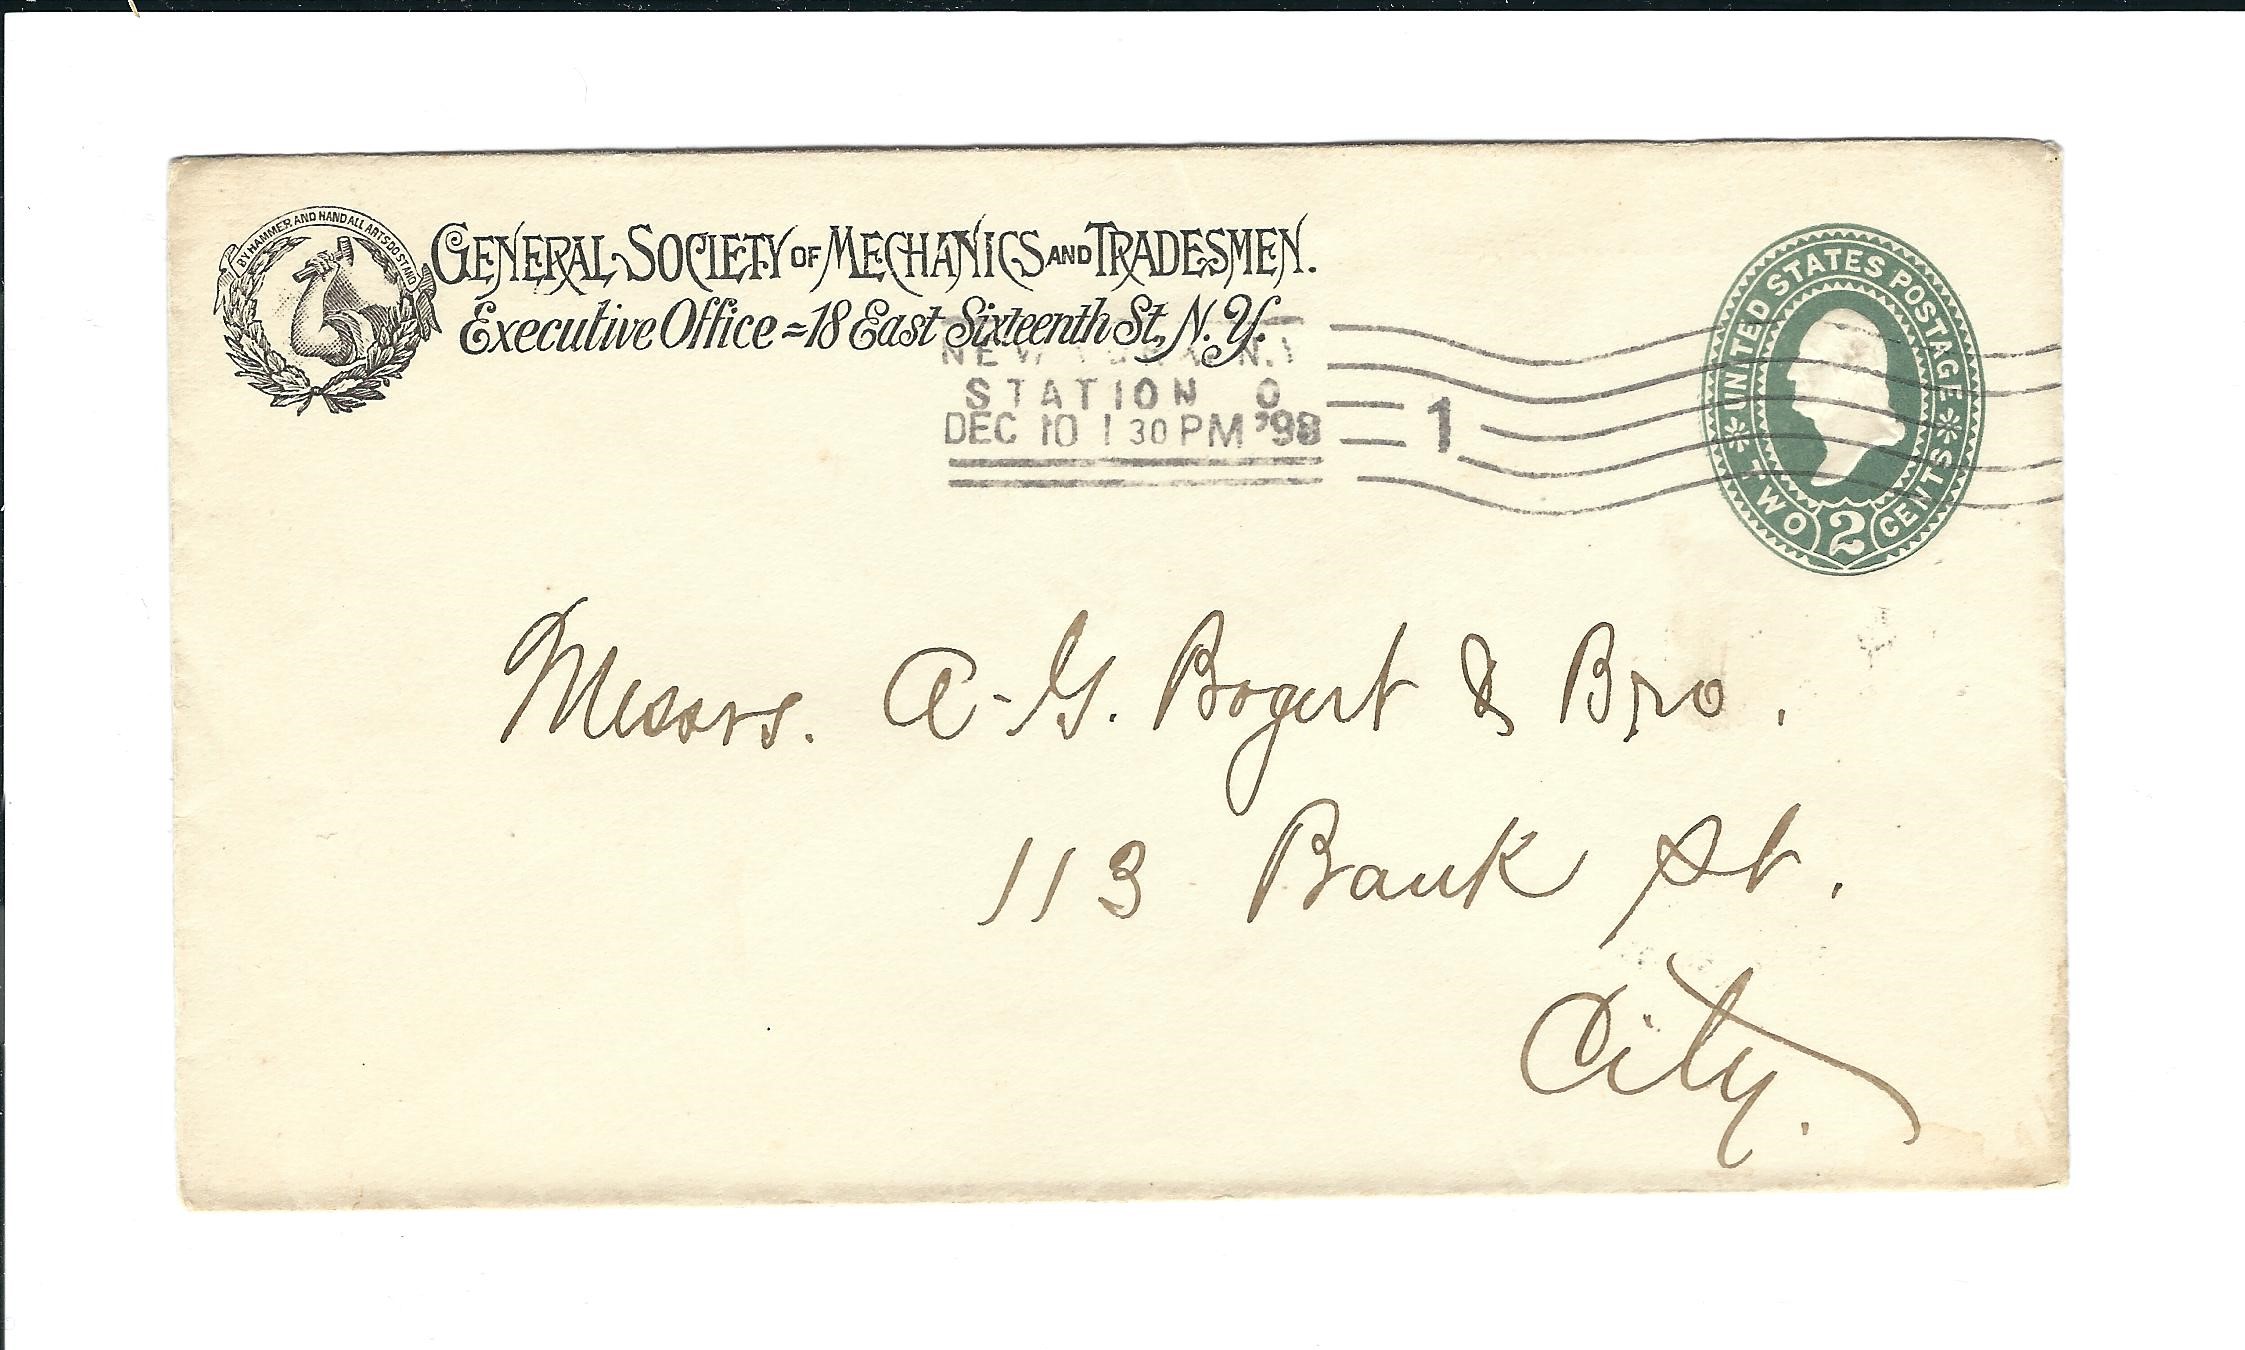 BY HAMMER AND HAND ALL ARTS DO STAND
GENERAL SOCIETY OF MECHANICS AND TRADESMEN.
Executive Office = 18 East Sixteenth St, N. Y.
NEW YORK N.Y
STATION O
DEC 10 1 30 PM '98
1
UNITED STATES POSTAGE
TWO 2 CENTS
Messrs. A. G. Bogert & Bro.
113 Bank St.
City.